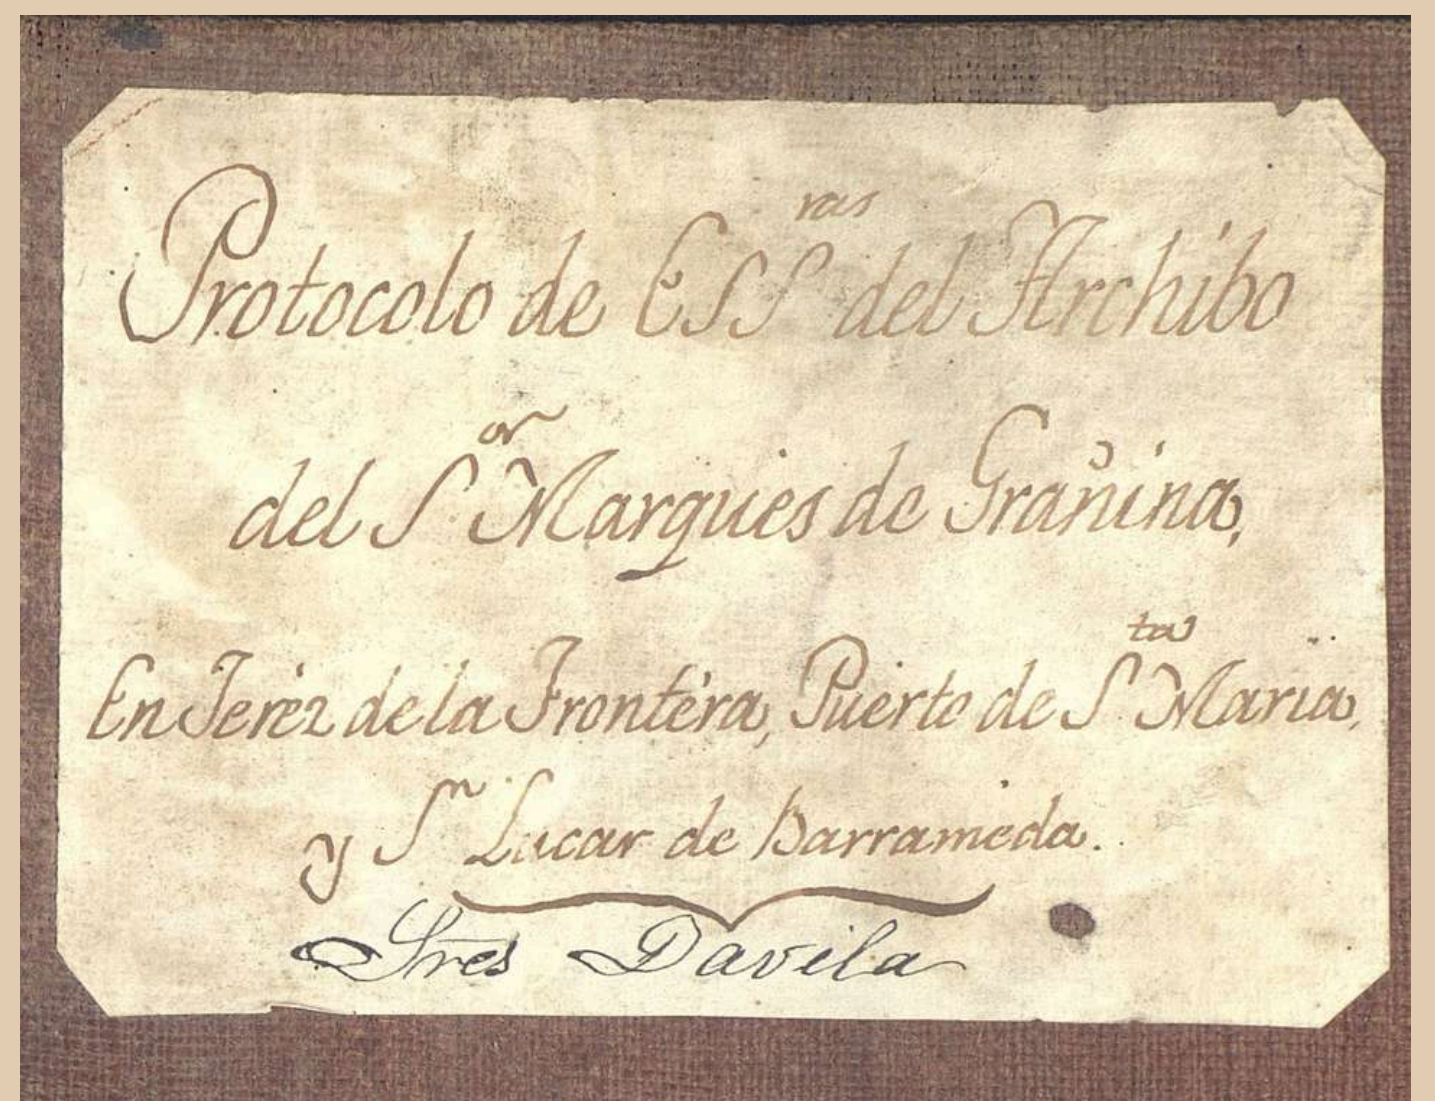 Protocolo de ESS.ras del Archibo
del S.or Marques de Grañina,
En Jeréz de la Frontéra, Puerto de S.ta Maria,
y S.n Lucar de Barrameda.
Sres Davila